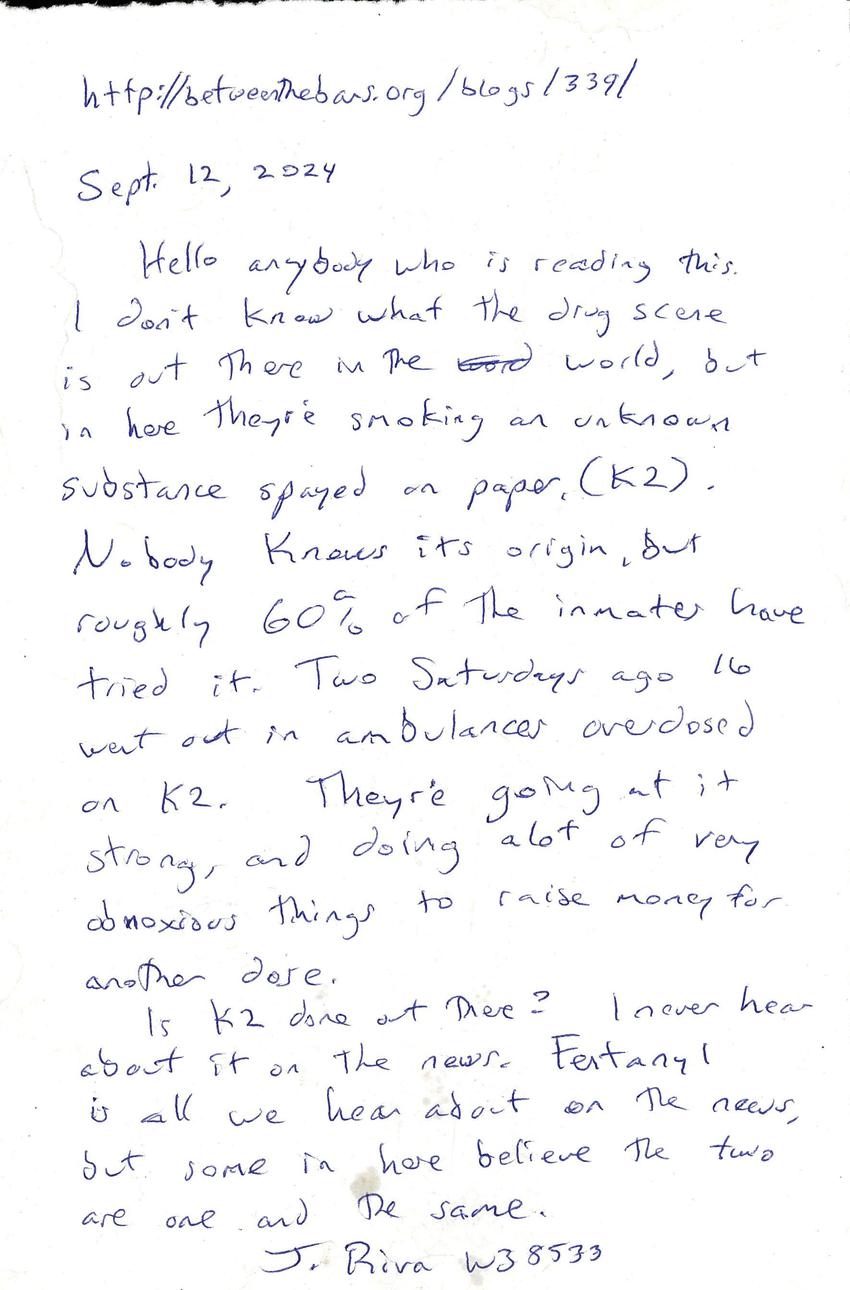 http://betweenthebars.org/blogs/339/
Sept. 12, 2024
Hello anybody who is reading this.
I don't know what the drug scene
is out there in the world, but
in here they're smoking an unknown
substance spayed on paper. (K2).
Nobody knows its origin, but
roughly 60% of the inmates have
tried it. Two Saturdays ago 16
went out in ambulances overdosed
on K2. They're going at it
strong, and doing alot of very
obnoxious things to raise money for
another dose.
Is K2 done out there? I never hear
about it on the news. Fentanyl
is all we hear about on the news,
but some in here believe the two
are one and the same.
J. Riva W38533